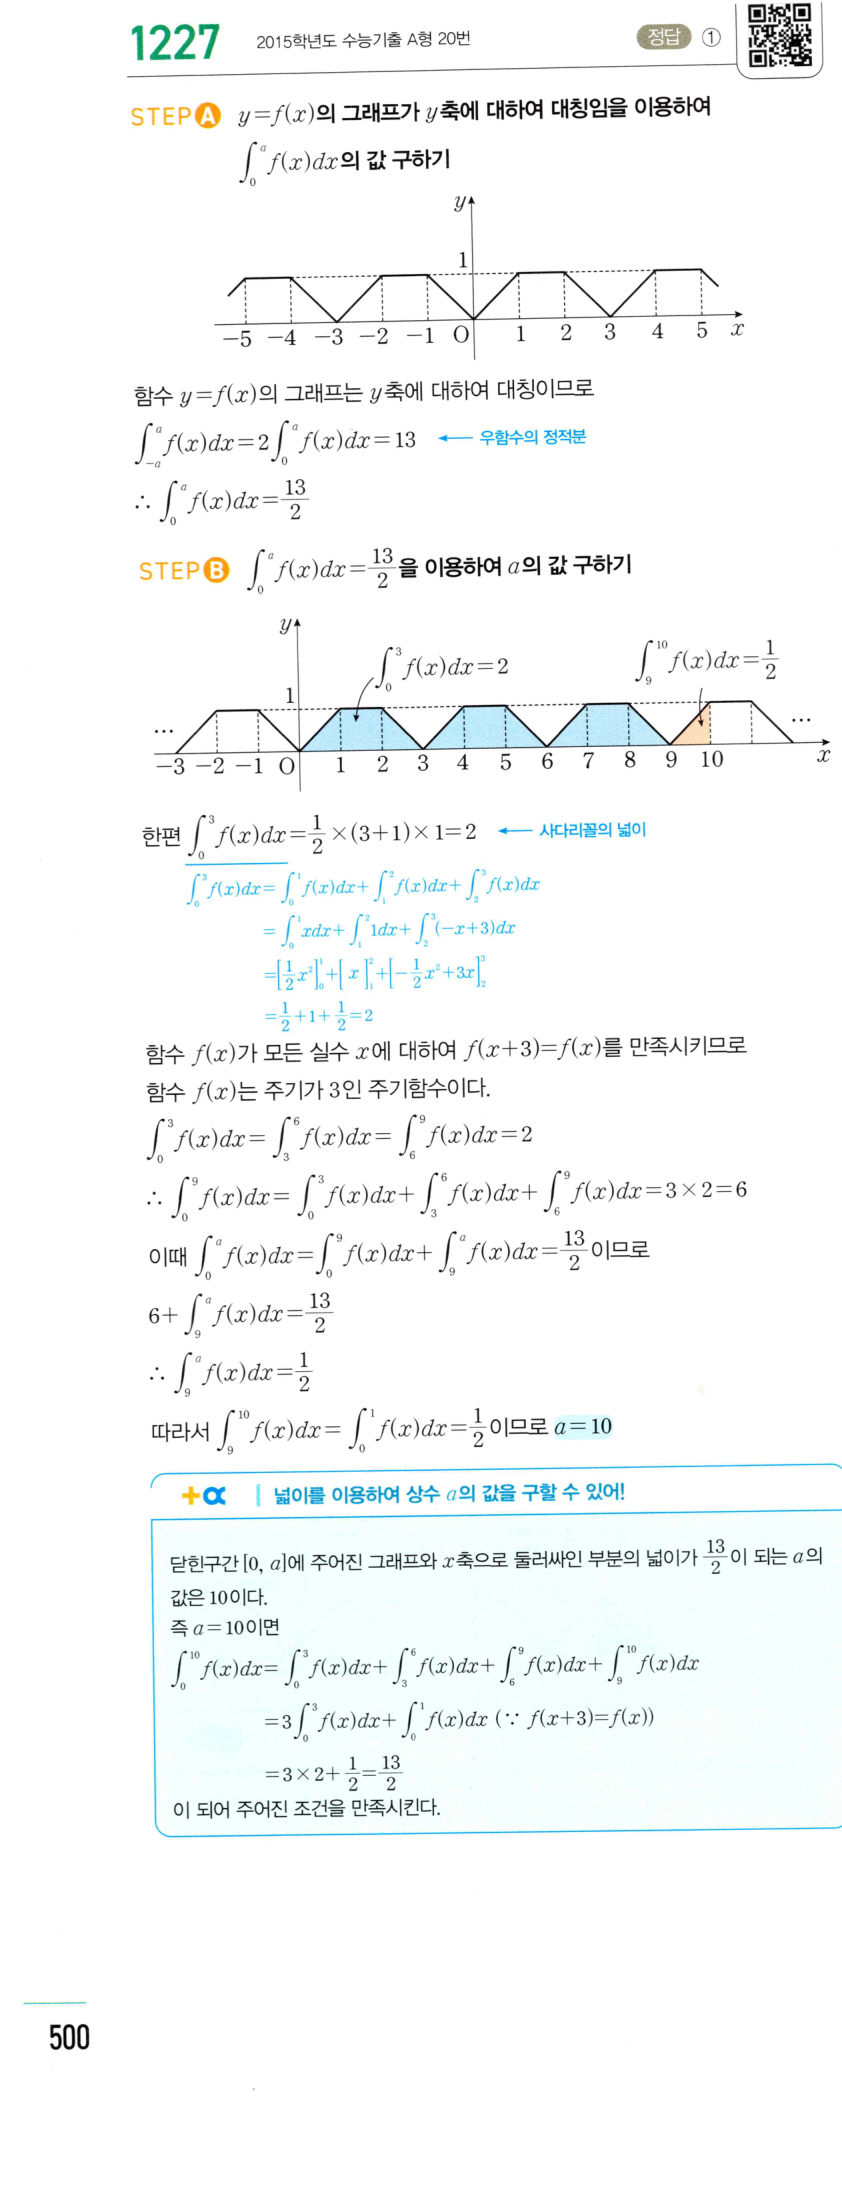 1227 2015학년도 수능기출 A형 20번 정답 ①
STEP A y=f(x)의 그래프가 y축에 대하여 대칭임을 이용하여
∫₀ᵃ f(x)dx의 값 구하기
y
1
-5 -4 -3 -2 -1 O 1 2 3 4 5 x
함수 y=f(x)의 그래프는 y축에 대하여 대칭이므로
∫₋ₐᵃ f(x)dx=2∫₀ᵃ f(x)dx=13 ← 우함수의 정적분
∴ ∫₀ᵃ f(x)dx=13/2
STEP B ∫₀ᵃ f(x)dx=13/2을 이용하여 a의 값 구하기
y
∫₀³ f(x)dx=2 ∫₉¹⁰ f(x)dx=1/2
1
... ...
-3 -2 -1 O 1 2 3 4 5 6 7 8 9 10 x
한편 ∫₀³ f(x)dx=1/2×(3+1)×1=2 ← 사다리꼴의 넓이
∫₀³ f(x)dx=∫₀¹ f(x)dx+∫₁² f(x)dx+∫₂³ f(x)dx
=∫₀¹ xdx+∫₁² 1dx+∫₂³ (-x+3)dx
=[1/2x²]₀¹+[x]₁²+[-1/2x²+3x]₂³
=1/2+1+1/2=2
함수 f(x)가 모든 실수 x에 대하여 f(x+3)=f(x)를 만족시키므로
함수 f(x)는 주기가 3인 주기함수이다.
∫₀³ f(x)dx=∫₃⁶ f(x)dx=∫₆⁹ f(x)dx=2
∴ ∫₀⁹ f(x)dx=∫₀³ f(x)dx+∫₃⁶ f(x)dx+∫₆⁹ f(x)dx=3×2=6
이때 ∫₀ᵃ f(x)dx=∫₀⁹ f(x)dx+∫₉ᵃ f(x)dx=13/2이므로
6+∫₉ᵃ f(x)dx=13/2
∴ ∫₉ᵃ f(x)dx=1/2
따라서 ∫₉¹⁰ f(x)dx=∫₀¹ f(x)dx=1/2이므로 a=10
+α 넓이를 이용하여 상수 a의 값을 구할 수 있어!
닫힌구간 [0, a]에 주어진 그래프와 x축으로 둘러싸인 부분의 넓이가 13/2이 되는 a의
값은 10이다.
즉 a=10이면
∫₀¹⁰ f(x)dx=∫₀³ f(x)dx+∫₃⁶ f(x)dx+∫₆⁹ f(x)dx+∫₉¹⁰ f(x)dx
=3∫₀³ f(x)dx+∫₀¹ f(x)dx (∵ f(x+3)=f(x))
=3×2+1/2=13/2
이 되어 주어진 조건을 만족시킨다.
500